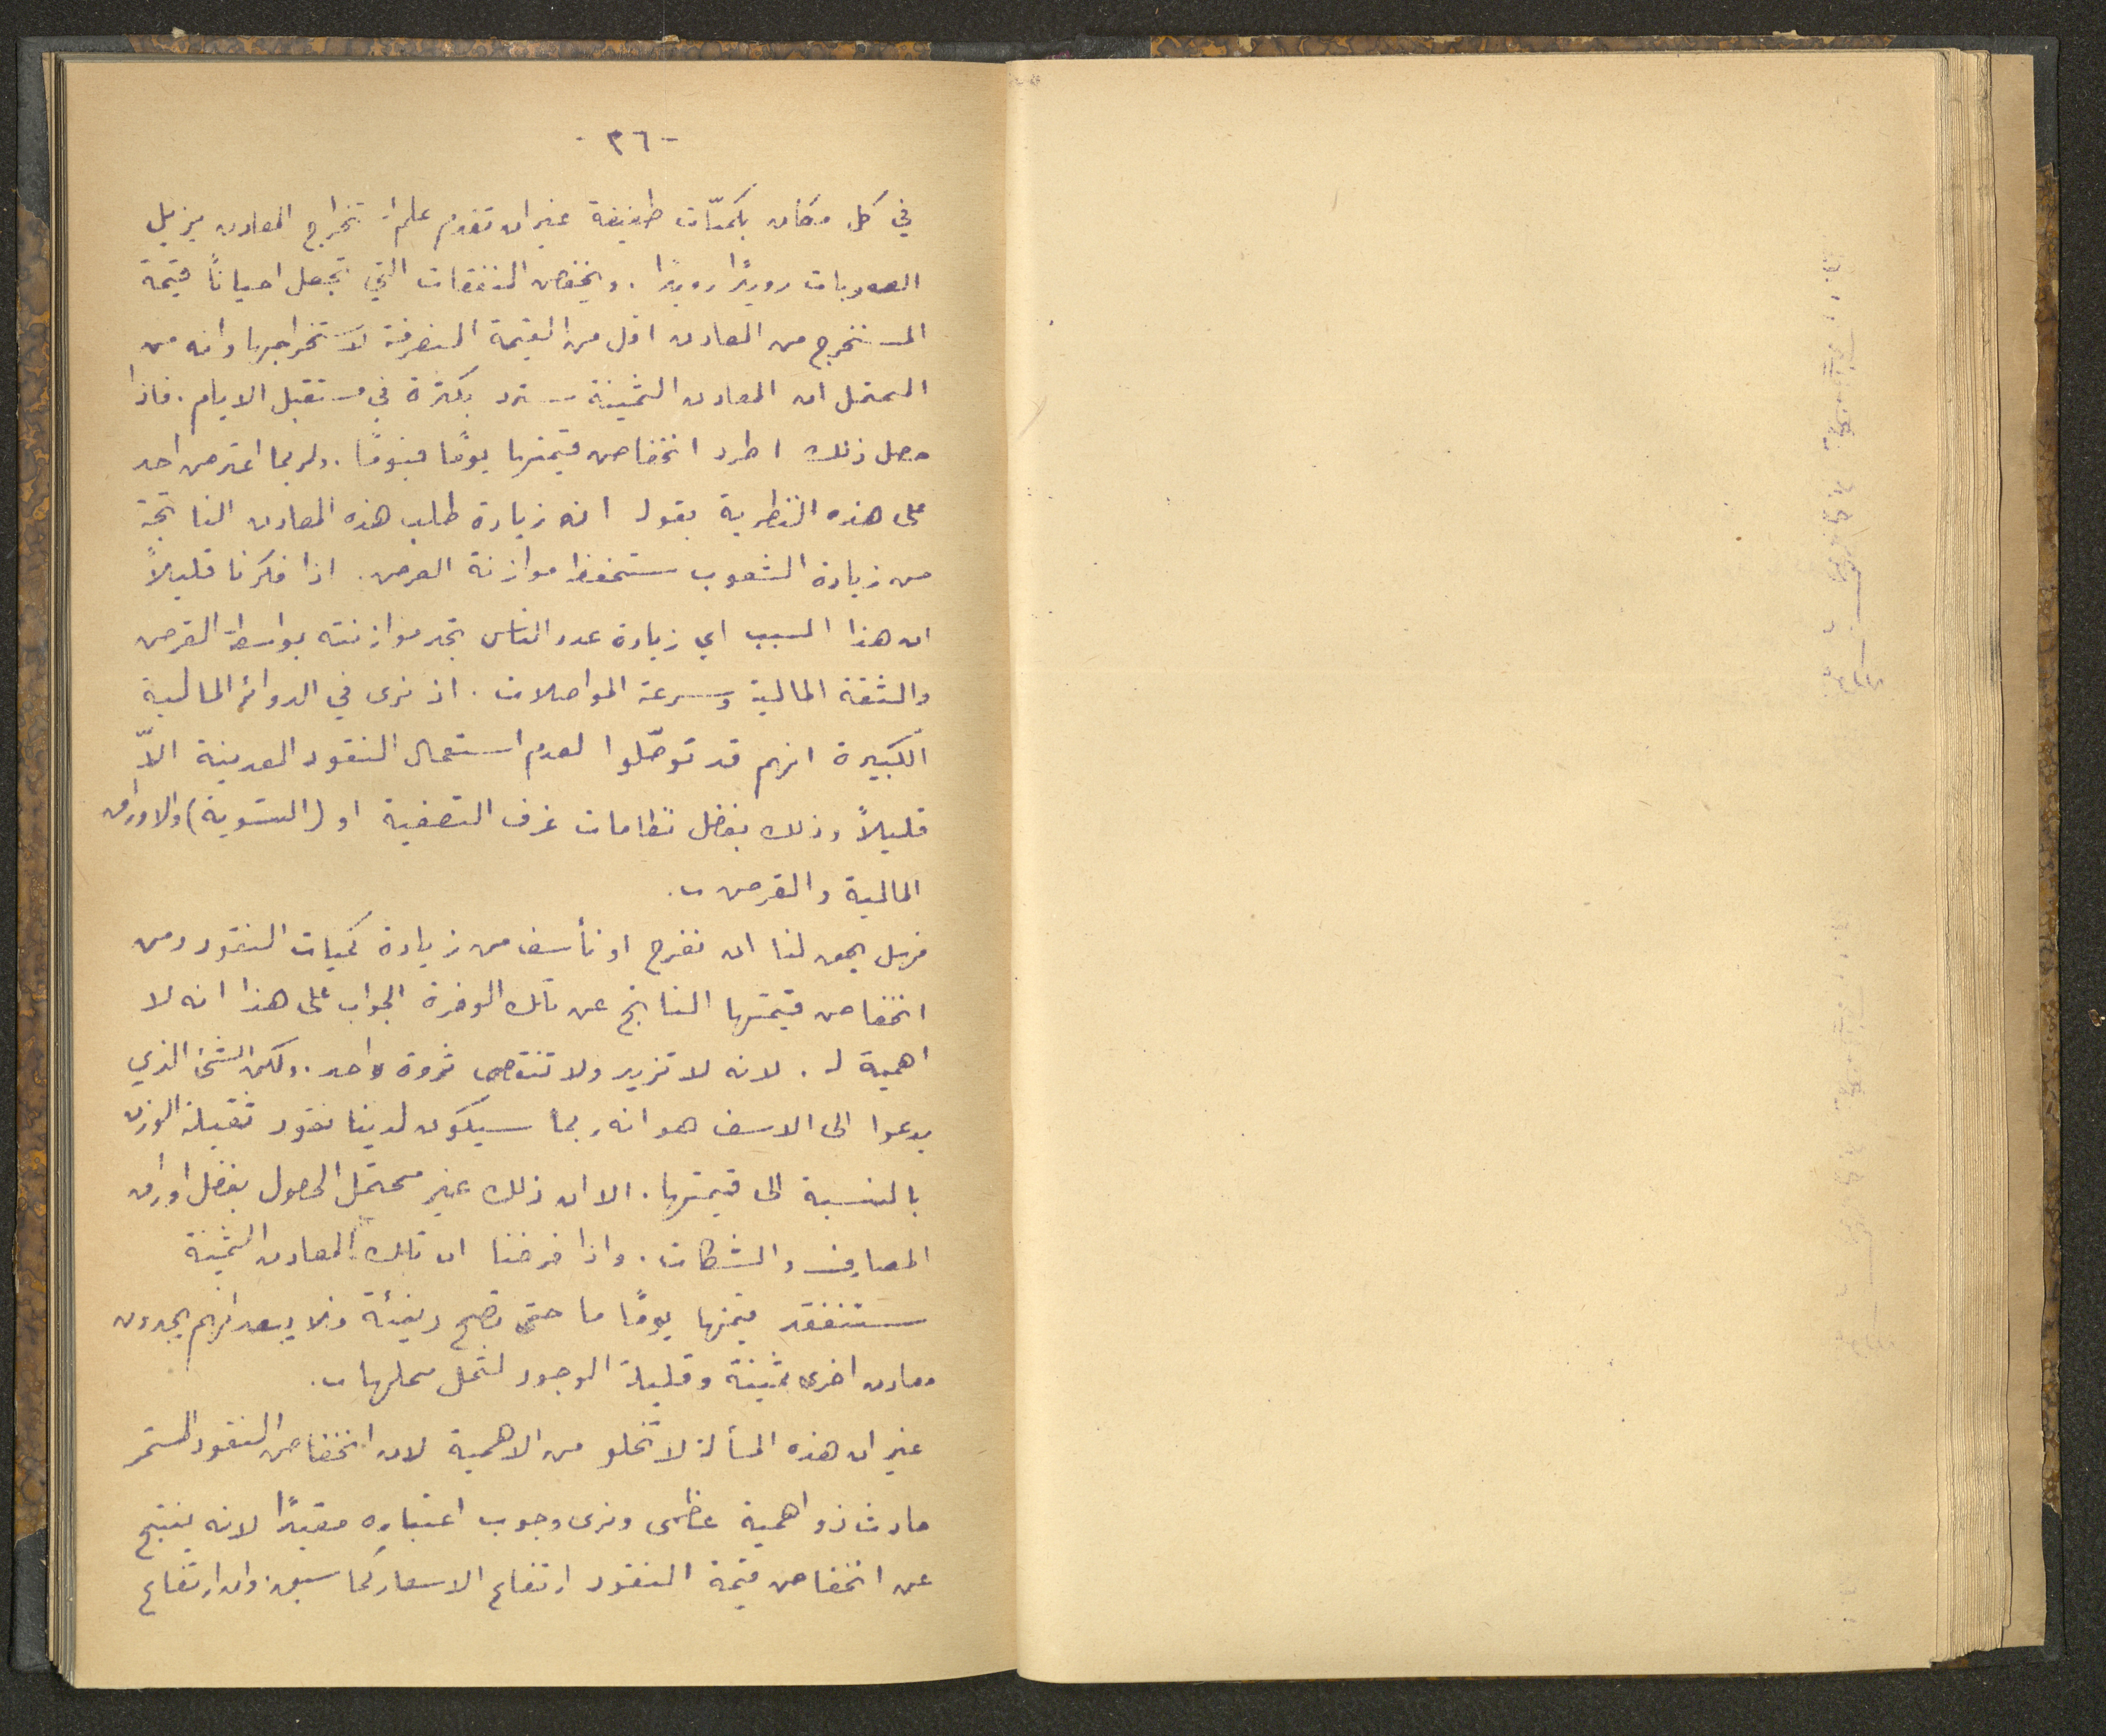 - ٣٦ -
في كل مكان بكميّات طفيفة غير ان تقدم علم استخراج المعادن يزيل
الصعوبات رويدًا رويدًا. ويخفض النفقات التي تجعل احيانًا قيمة
المستخرج من المعادن اقل من القيمة المصرفة لاستخراجها وانه من
المحتمل ان المعادن الثمينة سترد بكثرة في مستقبل الايام. فاذا
حصل ذلك اطرد انخفاض قيمتها يومًا فيومًا. ولربما اعترض احد
على هذه النظرية بقوله انه زيادة طلب هذه المعادن الناتجة
من زيادة الشعوب ستحفظ موازنة العرض. اذا فكرنا قليلاً
ان هذا السبب اي زيادة عدد الناس تجد موازنته بواسطة القرض
والثقة المالية وسرعة المواصلات. اذ نرى في الدوائر المالية
الكبيرة انهم قد توصّلوا لعدم استعمال النقود المعدنية الاّ
قليلاً وذلك بفضل نظامات غرف التصفية او (التسوية) والاوراق
المالية والقرض.
فهل يحق لنا ان نفرح او نأسف من زيادة كميات النقود ومن
انخفاض قيمتها الناتج عن تلك الوفرة الجواب على هذا انه لا
اهمية له. لانه لا تزيد ولا تنتقص ثروة واحد. ولكن الشئ الذي
يدعوا الى الاسف هو انه ربما سيكون لدينا نقود ثقيلة الوزن
بالنسبة الى قيمتها. الا ان ذلك غير محتمل الحصول بفضل اوراق
المصارف والشكات. واذا فرضنا ان تلك المعادن الثمينة
ستفقد قيمتها يومًا ما حتى تصبح دنيئة فلا يبعد انهم يجدون
معادن اخرى ثمينة وقليلة الوجود لتحل محلها.
غير ان هذه المسألة لا تخلو من الاهمية لان انخفاض النقود المستمر
حادث ذو اهمية عظمى ونرى وجوب اعتباره مقيدًا لانه ينتج
عن انخفاض قيمة النقود ارتفاع الاسعار كما سبق. وان ارتفاع